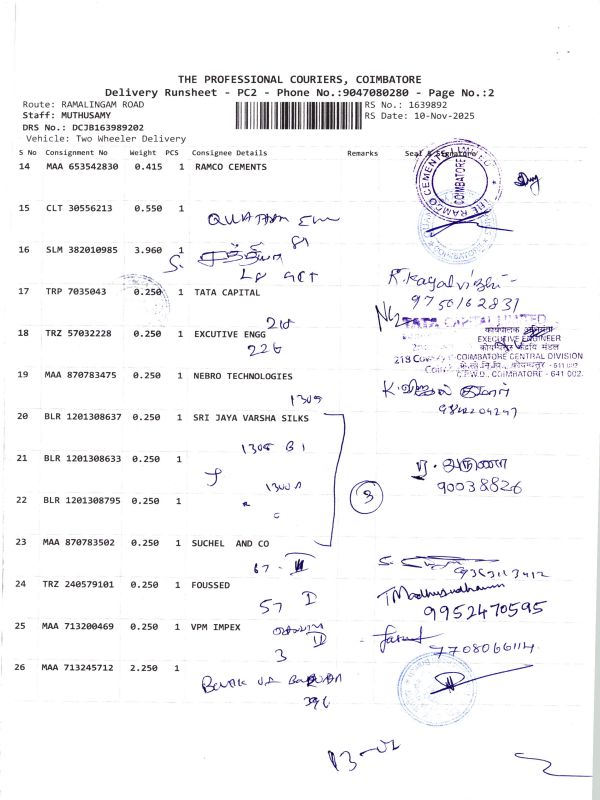 THE PROFESSIONAL COURIERS, COIMBATORE
Delivery Runsheet - PC2 - Phone No.:9047080280 - Page No.:2
Route: RAMALINGAM ROAD RS No.: 1639892
Staff: MUTHUSAMY RS Date: 10-Nov-2025
DRS No.: DCJB163989202
Vehicle: Two Wheeler Delivery
S No Consignment No Weight PCS Consignee Details Remarks Seal & Signature
14 MAA 653542830 0.415 1 RAMCO CEMENTS
THE RAMCO CEMENTS LIMITED
COIMBATORE
15 CLT 30556213 0.550 1
16 SLM 382010985 3.960 1
R. Kayalvizhi
9750162831
17 TRP 7035043 0.250 1 TATA CAPITAL
TATA CAPITAL LIMITED
210
18 TRZ 57032228 0.250 1 EXCUTIVE ENGG
226
कार्यपालक अभियंता
EXECUTIVE ENGINEER
COIMBATORE CENTRAL DIVISION
C.P.W.D., COIMBATORE - 641 002.
19 MAA 870783475 0.250 1 NEBRO TECHNOLOGIES
1305
20 BLR 1201308637 0.250 1 SRI JAYA VARSHA SILKS
1305 B1
21 BLR 1201308633 0.250 1
வ. அருணா
90038826
22 BLR 1201308795 0.250 1
3
23 MAA 870783502 0.250 1 SUCHEL AND CO
67
24 TRZ 240579101 0.250 1 FOUSSED
57 I
T Madhusudhanan
9952470595
25 MAA 713200469 0.250 1 VPM IMPEX
3
7708066114
26 MAA 713245712 2.250 1
Bank of Baroda
396